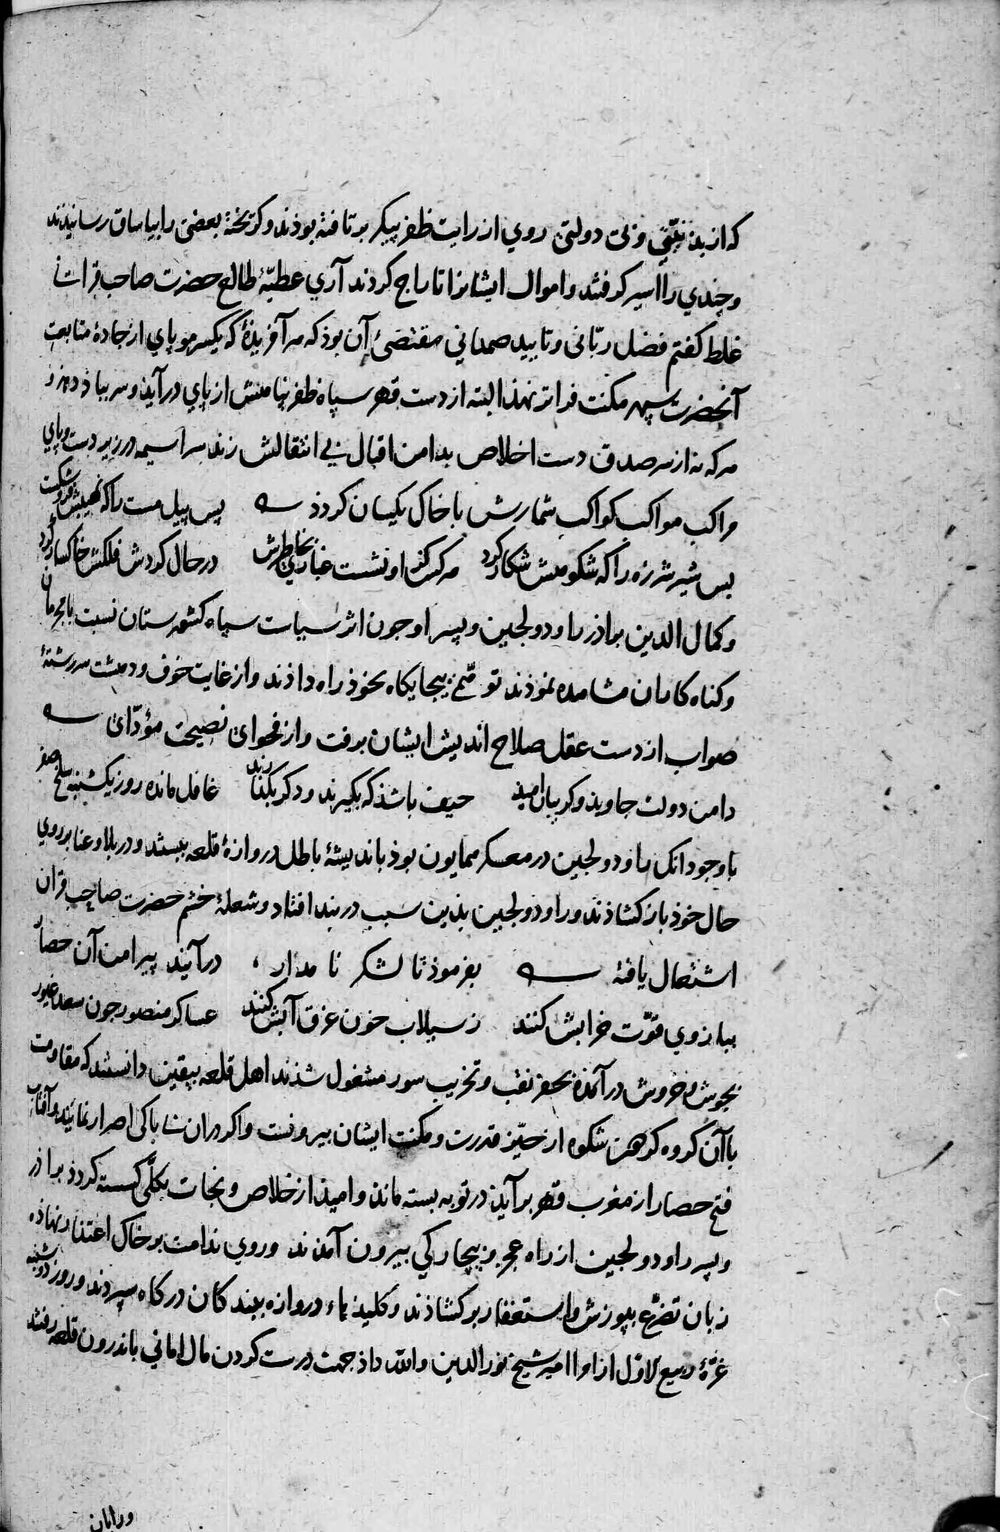 که از بذبختی و بی دولتی روی از رایت ظفر پیکر برتافته بوذند و کریخته بعضی را بیاساق رسانیدند
و چندی را اسیر کرفتند و اموال ایشانرا تاراج کردند آری عطیهٔ طالع حضرت صاحب قرانی
غلط کفتم فضل ربّانی و تایید صمدانی مقتضیٔ آن بوذ که هر آفریدهٔ که یکسر موی پای از جادهٔ متابعت
آنحضرت سپهر مکنت فراتر نهذ البته از دست قهر سپاه ظفر پناهش از پای درآید و سر بباذ دهذ و
هر که نه از سر صدق دست اخلاص بدامن اقبال بی انتقالش زند سراسیمه در زیر دست و پای
مراکب مواکب کواکب شمارش با خاک یکسان کردذ بس پیل مست را که نهیبش فرو شکست
بس شیر شرزه را که شکوهش شکار کرد هر کز او نشست غباری بخاطرش در حال کردش فلکش خاکسار کرد
و کمال الدین براذر راو دولجین و پسر او جون اثر سیاست سپاه کشورستان نسبت با مجرمان
و کناه کاران مشاهده نموذند توهّم بیجایکاه بخوذ راه داذند و از غایت خوف و دهشت سررشتهٔ
صواب از دست عقل صلاح اندیش ایشان برفت و از فحوای نصیحت مؤدّای
دامن دولت جاوید و کریبان امید حیف باشذ که بکیرند و دکر بکذارند غافل مانده روز یکشنبه سلخ صفر
با وجود انک راو دولجین در معسکر همایون بوذ باندیشهٔ باطل دروازهٔ قلعه ببستند و در بلا و عنا بر روی
حال خوذ باز کشاذند و راو دولجین بذین سبب در بند افتاد و شعلهٔ خشم حضرت صاحب قران
اشتعال یافته بفرموذ تا لشکر نامدار ، درآیند پیرامن آن حصار
ببازوی قوّت خرابش کنند ز سیلاب خون غرق آبش کنند عساکر منصور جون سعد غیور
بجوش و خروش درآمذه بحفر نقب و تخریب سور مشغول شذند اهل قلعه بیقین دانستند که مقاومت
با آن کروه کوهن شکوه از حیّز قدرت و مکنت ایشان بیرونست و اکر در ان بی باکی اصرار نمایند و آفتاب
فتح حصار از مغرب قهر برآید در توبه بسته ماند و امید از خلاص و نجات بکلّی کسسته کردذ براذر
و پسر راو دولجین از راه عجز و بیچارکی بیرون آمدند و روی ندامت بر خاک اعتذار نهاذه
زبان تضرّع بپوزش و استغفار برکشاذند و کلیدهاء دروازه ببندکان درکاه سپردند و روز دوشنبه
غرّهٔ ربیع الاوّل از امرا امیر شیخ نور الدین و الله داذ جهت درست کردن مال امانی باندرون قلعه رفتند
ورایان